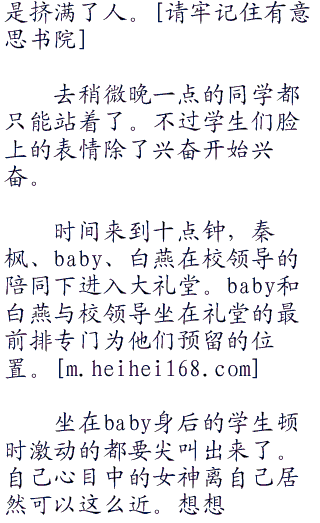 是挤满了人。[请牢记住有意
思书院]
去稍微晚一点的同学都
只能站着了。不过学生们脸
上的表情除了兴奋开始兴
奋。
时间来到十点钟，秦
枫、baby、白燕在校领导的
陪同下进入大礼堂。baby和
白燕与校领导坐在礼堂的最
前排专门为他们预留的位
置。[m.heihei168.com]
坐在baby身后的学生顿
时激动的都要尖叫出来了。
自己心目中的女神离自己居
然可以这么近。想想